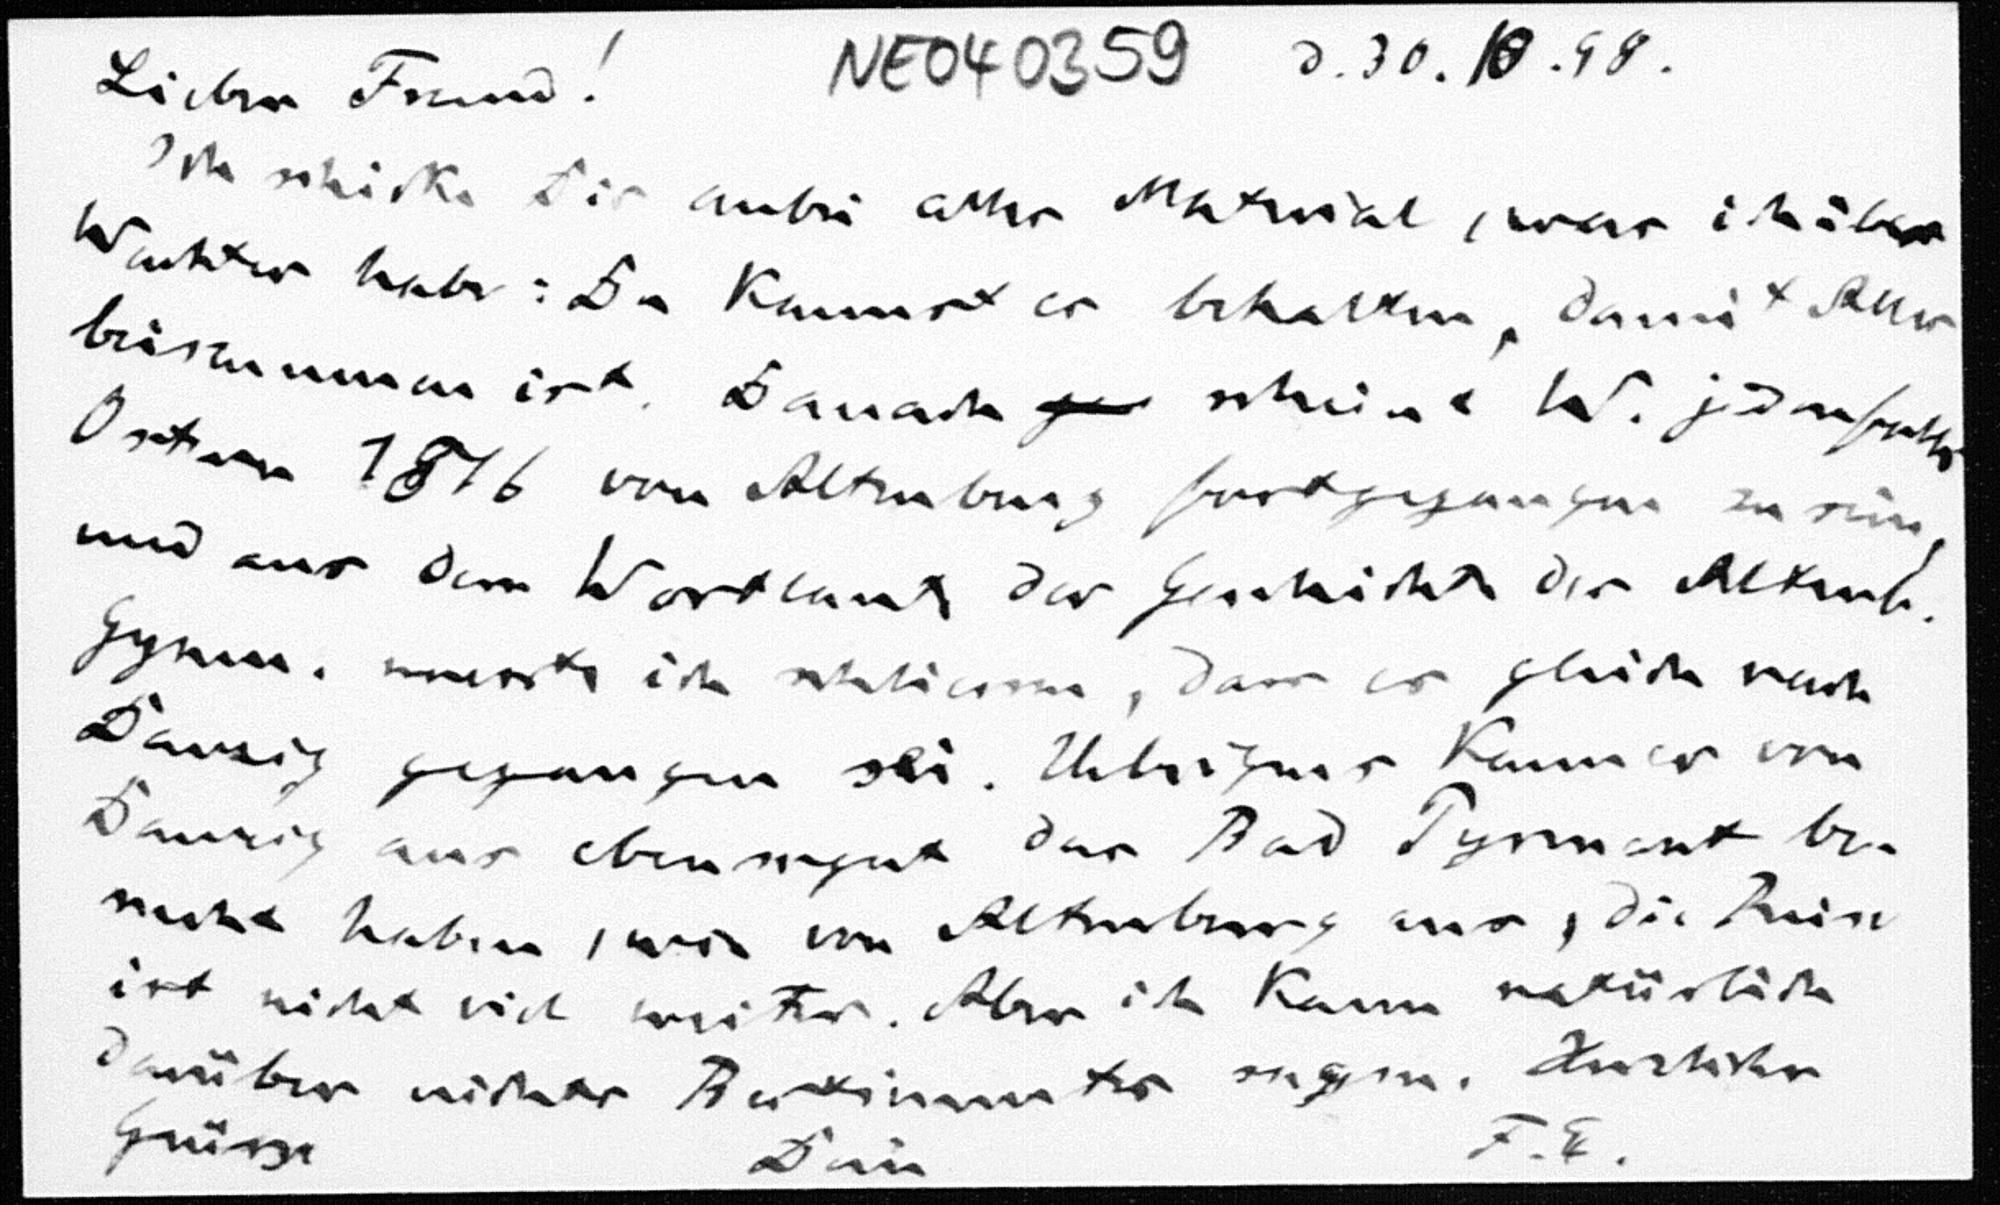 NE040359 d. 30. 10. 98.
Lieber Freund!
Ich schicke Dir anbei alles Material, was ich über
Wachter habe: Du kannst es behalten, damit Alles
beisammen ist. Danach scheint W. jedenfalls
Ostern 1816 von Altenburg fortgegangen zu sein,
und aus dem Wortlaute der Geschichte des Altenb.
Gymn. muesste ich schliessen, dass er gleich nach
Danzig gegangen sei. Uebrigens kann er von
Danzig aus ebensogut das Bad Pyrmont be-
sucht haben, wie von Altenburg aus, die Reise
ist nicht viel weiter. Aber ich kann natürlich
darüber nichts Bestimmtes sagen. Herzliche
Grüsse Dein F. E.